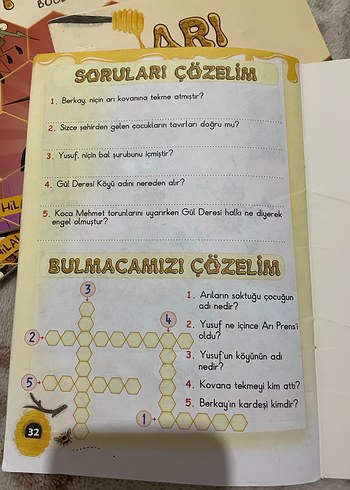 ARI
SORULARI ÇÖZELİM
1. Berkay, niçin arı kovanına tekme atmıştır?
2. Sizce şehirden gelen çocukların tavırları doğru mu?
3. Yusuf, niçin bal şurubunu içmiştir?
4. Gül Deresi Köyü adını nereden alır?
5. Koca Mehmet torunlarını uyarırken Gül Deresi halkı ne diyerek
engel olmuştur?
BULMACAMIZI ÇÖZELİM
3
4
2
5
1
1. Arıların soktuğu çocuğun
adı nedir?
2. Yusuf ne içince Arı Prensi
oldu?
3. Yusuf'un köyünün adı
nedir?
4. Kovana tekmeyi kim attı?
5. Berkay'ın kardeşi kimdir?
32